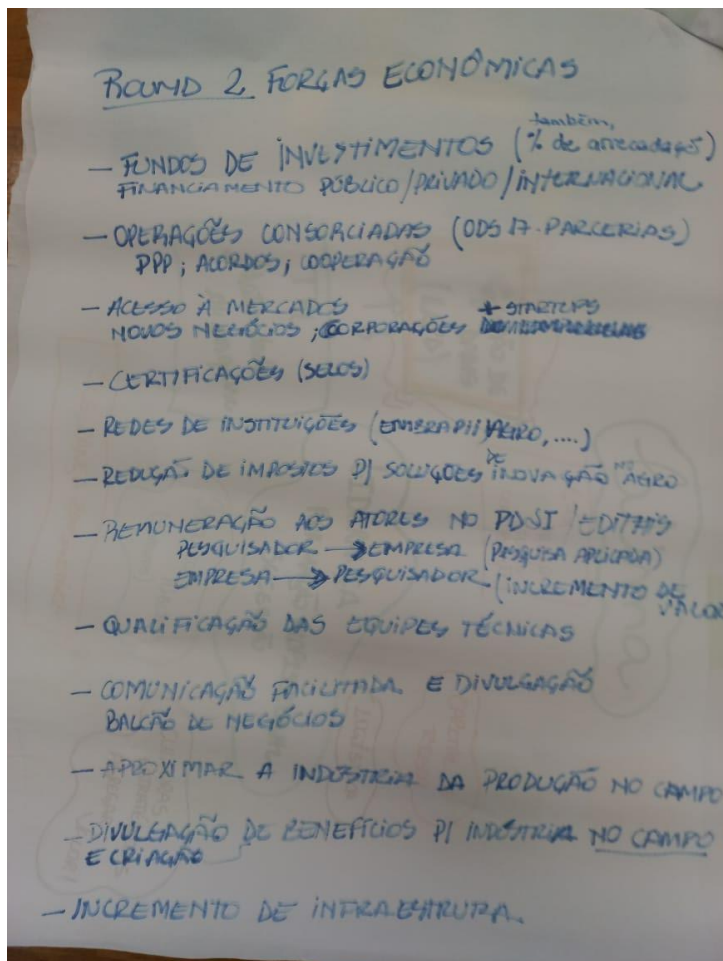 ROUND 2 FORÇAS ECONÔMICAS
também,
— FUNDOS DE INVESTIMENTOS (% de arrecadação)
FINANCIAMENTO PÚBLICO/PRIVADO/INTERNACIONAL
— OPERAÇÕES CONSORCIADAS (ODS 17. PARCERIAS)
PPP; ACORDOS; COOPERAÇÃO
— ACESSO À MERCADOS + STARTUPS
NOVOS NEGÓCIOS; CORPORAÇÕES
— CERTIFICAÇÕES (SELOS)
— REDES DE INSTITUIÇÕES (EMBRAPII AGRO, ....)
— REDUÇÃO DE IMPOSTOS P/ SOLUÇÕES DE INOVAÇÃO NO AGRO
— REMUNERAÇÃO AOS ATORES NO PD&I / EDITAIS
PESQUISADOR → EMPRESA (PESQUISA APLICADA)
EMPRESA → PESQUISADOR (INCREMENTO DE VALOR
— QUALIFICAÇÃO DAS EQUIPES TÉCNICAS
— COMUNICAÇÃO FACILITADA E DIVULGAÇÃO
BALCÃO DE NEGÓCIOS
— APROXIMAR A INDÚSTRIA DA PRODUÇÃO NO CAMPO
— DIVULGAÇÃO DE BENEFÍCIOS P/ INDÚSTRIA NO CAMPO
E CRIAÇÃO
— INCREMENTO DE INFRAESTRUTURA.